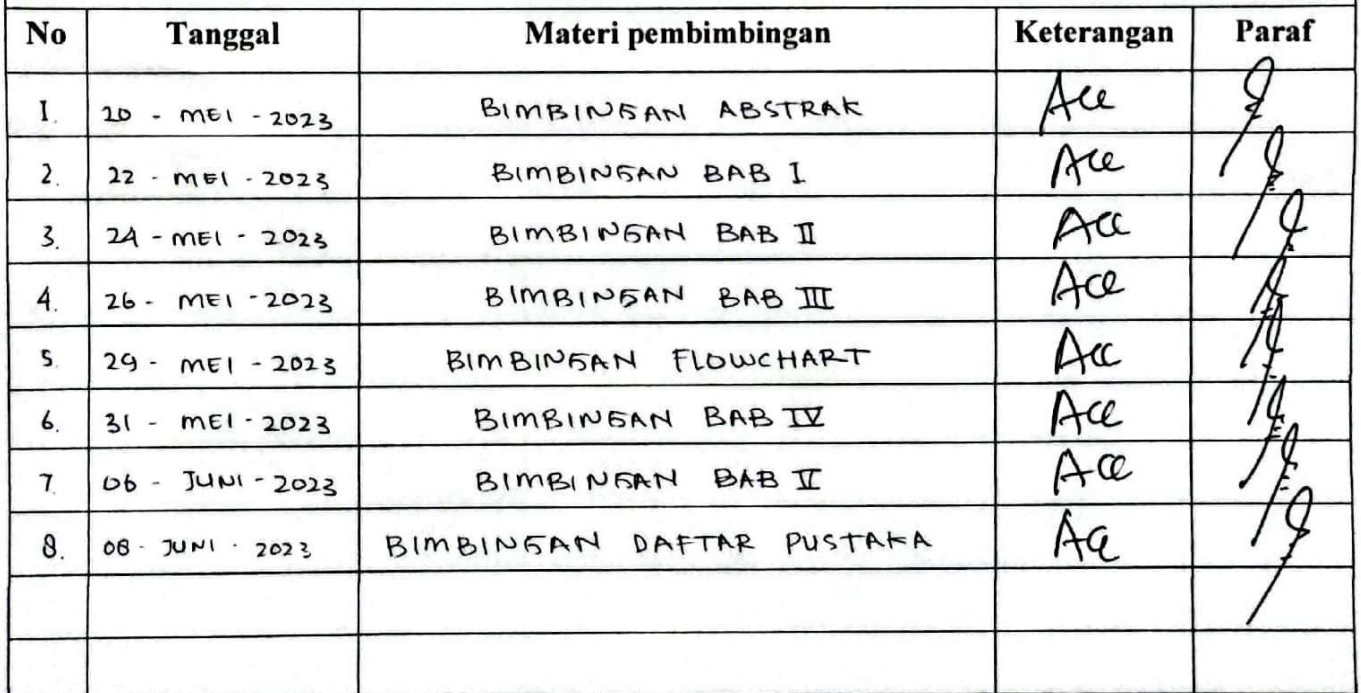 No Tanggal Materi pembimbingan Keterangan Paraf
1. 20 - MEI - 2023 BIMBINGAN ABSTRAK Acc
2. 22 - MEI - 2023 BIMBINGAN BAB I Acc
3. 24 - MEI - 2023 BIMBINGAN BAB II Acc
4. 26 - MEI - 2023 BIMBINGAN BAB III Acc
5. 29 - MEI - 2023 BIMBINGAN FLOWCHART Acc
6. 31 - MEI - 2023 BIMBINGAN BAB IV Acc
7. 06 - JUNI - 2023 BIMBINGAN BAB II Acc
8. 08 - JUNI - 2023 BIMBINGAN DAFTAR PUSTAKA Acc